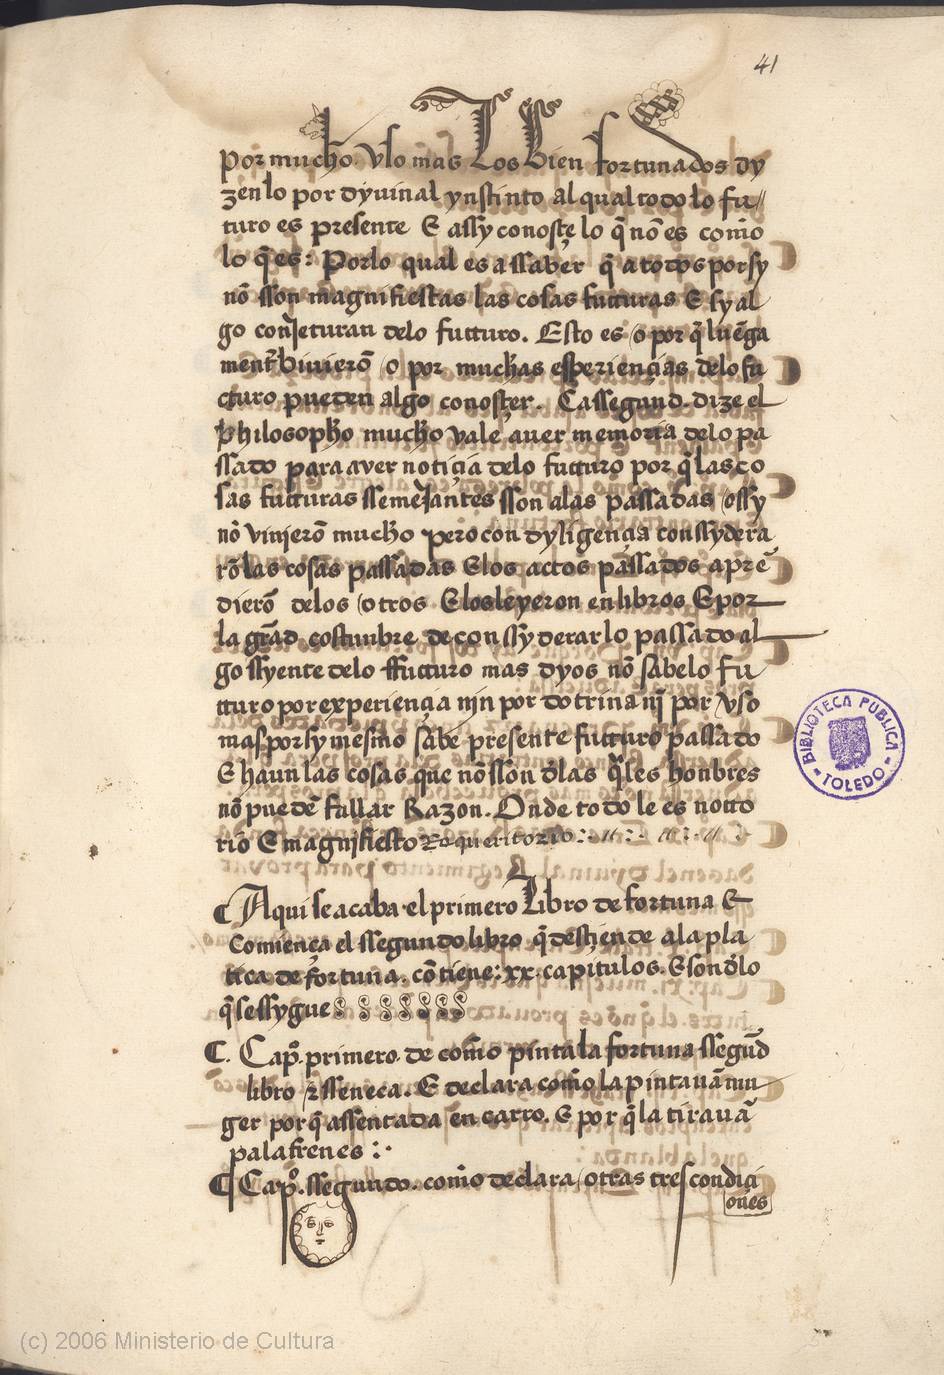 41
por mucho vso mas los bien fortunados dy
zen lo por dyuinal ynstinto al qual todo lo fu//
turo es presente E assy conosçe lo q̃ nõ es como
lo q̃ es: Porlo qual es a ssaber q̃ a todos por sy
nõ sson magnifiestas las cosas futturas E sy al
go conjeturan delo futturo. Esto es (o por q̃ luẽga
ment̃ biuierõ (o por muchas esperiençias delo fu
cturo pueden algo conosçer. Ca ssegund dize el
philosopho mucho vale auer memoria delo pa
ssado para aver notiçia delo futturo por q̃ las co
sas futturas ssemejantes sson alas passadas (o ssy
nõ vinjerõ mucho pero con dyligençia conssydera
rõ las cosas passadas E los actos passados aprẽ
dierõ delos (otros E los leyeron en libros E por
la grãd costunbre de conssyderar lo passado al
go ssyente delo ffutturo mas dyos nõ sabe lo fu
tturo por experiençia njn por dotrina nj̃ por vso
mas por sy mesmo sabe presente futturo passado
E haun las cosas que nõ sson dlas q̃les honbres
nõ puedẽ fallar Razon. Onde todo le es notto
rio E magnjfiesto Requeritorio:
¶ Aqui se acaba el primero libro de fortuna E
Comiença el ssegundo libro q̃ desçiende ala pla
tica de fortuna. cõtiene: xx. capitulos. E son dlo
q̃ se ssygue
¶. Capº. primero. de como pinta la fortuna ssegũd
libro r sseneca. E declara como la pintauã mu
ger por q̃ assentada en carro. E por q̃ la tirauã
palafrenes :·
¶ Capº. ssegundo. como declara (otras tres condiçi
ones
BIBLIOTECA PUBLICA
- TOLEDO -
(c) 2006 Ministerio de Cultura